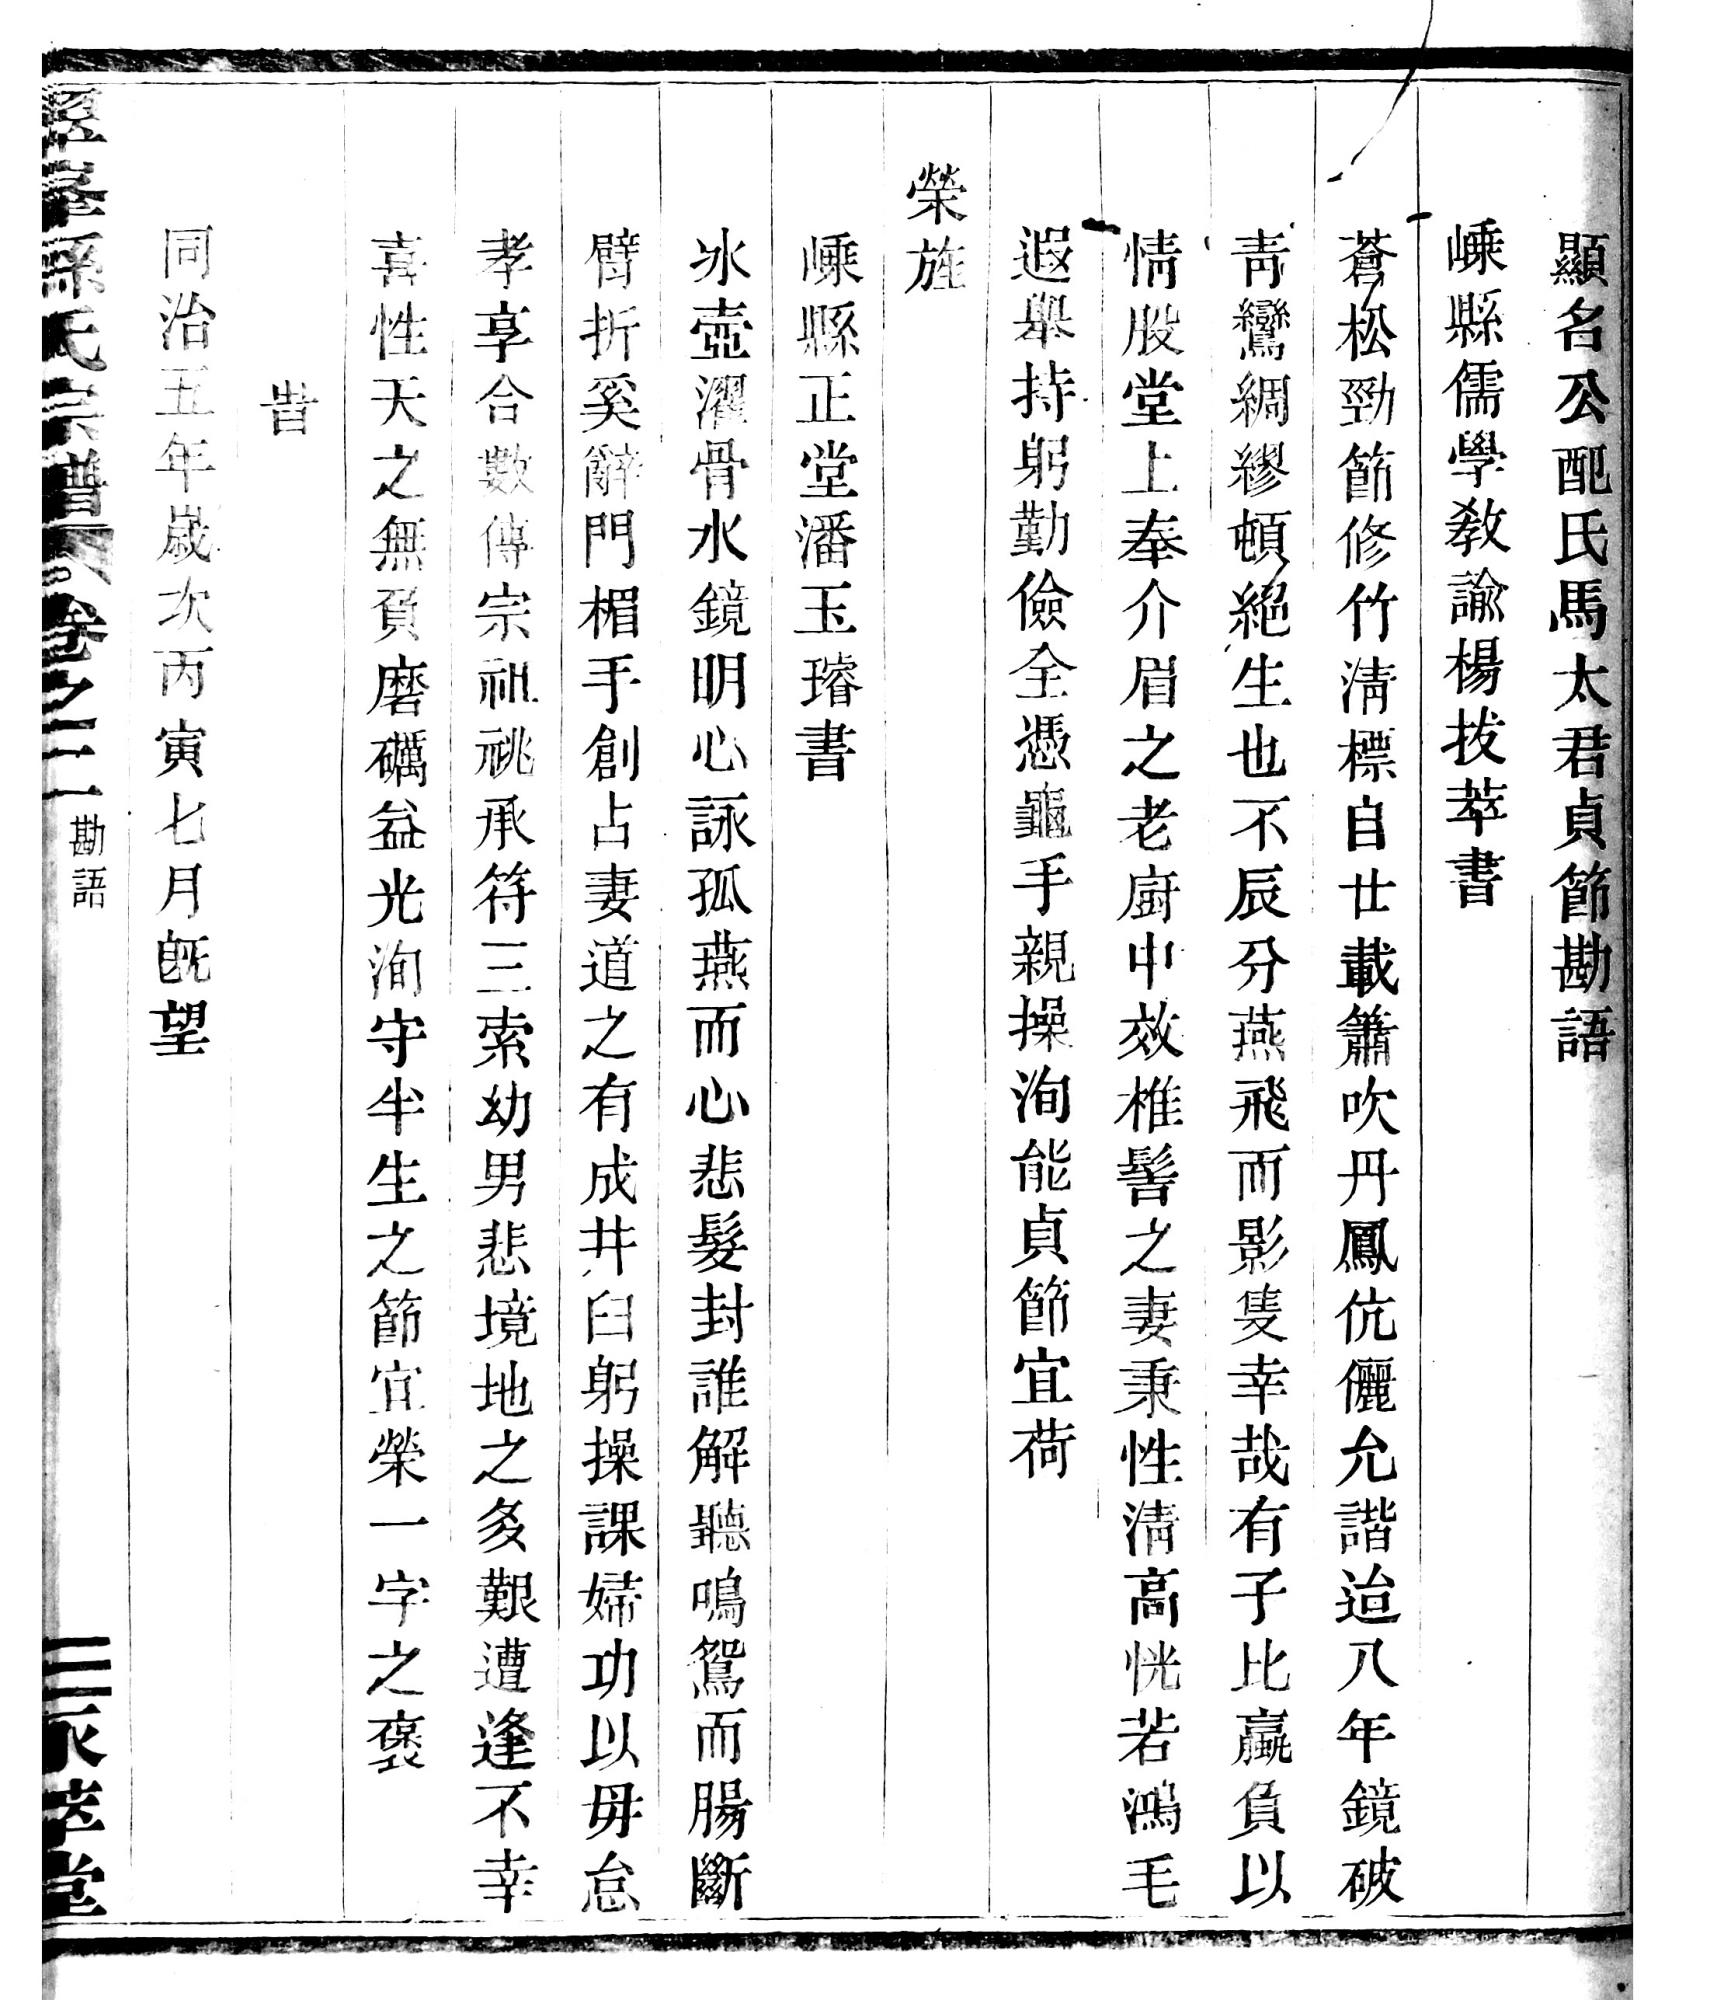 顯名公配氏馬太君貞節勘語
嵊縣儒學教諭楊拔萃書
蒼松勁節修竹淸標自廿載簫吹丹鳳伉儷允諧迨八年鏡破
靑鸞綢繆頓絕生也不辰分燕飛而影隻幸哉有子比蠃負以
情殷堂上奉介眉之老厨中效椎髻之妻秉性淸高恍若鴻毛
遐舉持躬勤儉全憑龜手親操洵能貞節宜荷
榮旌
嵊縣正堂潘玉璿書
氷壺濯骨水鏡明心詠孤燕而心悲髮封誰解聽鳴鴛而腸斷
臂折奚辭門楣手創占妻道之有成井臼躬操課婦功以毋怠
孝享合數傳宗祖祧承符三索幼男悲境地之多艱遭逢不幸
喜性天之無負磨礪益光洵守半生之節宜榮一字之褒
旹
同治五年歲次丙寅七月旣望
孫氏宗譜 卷之二 勘語 三 永萃堂